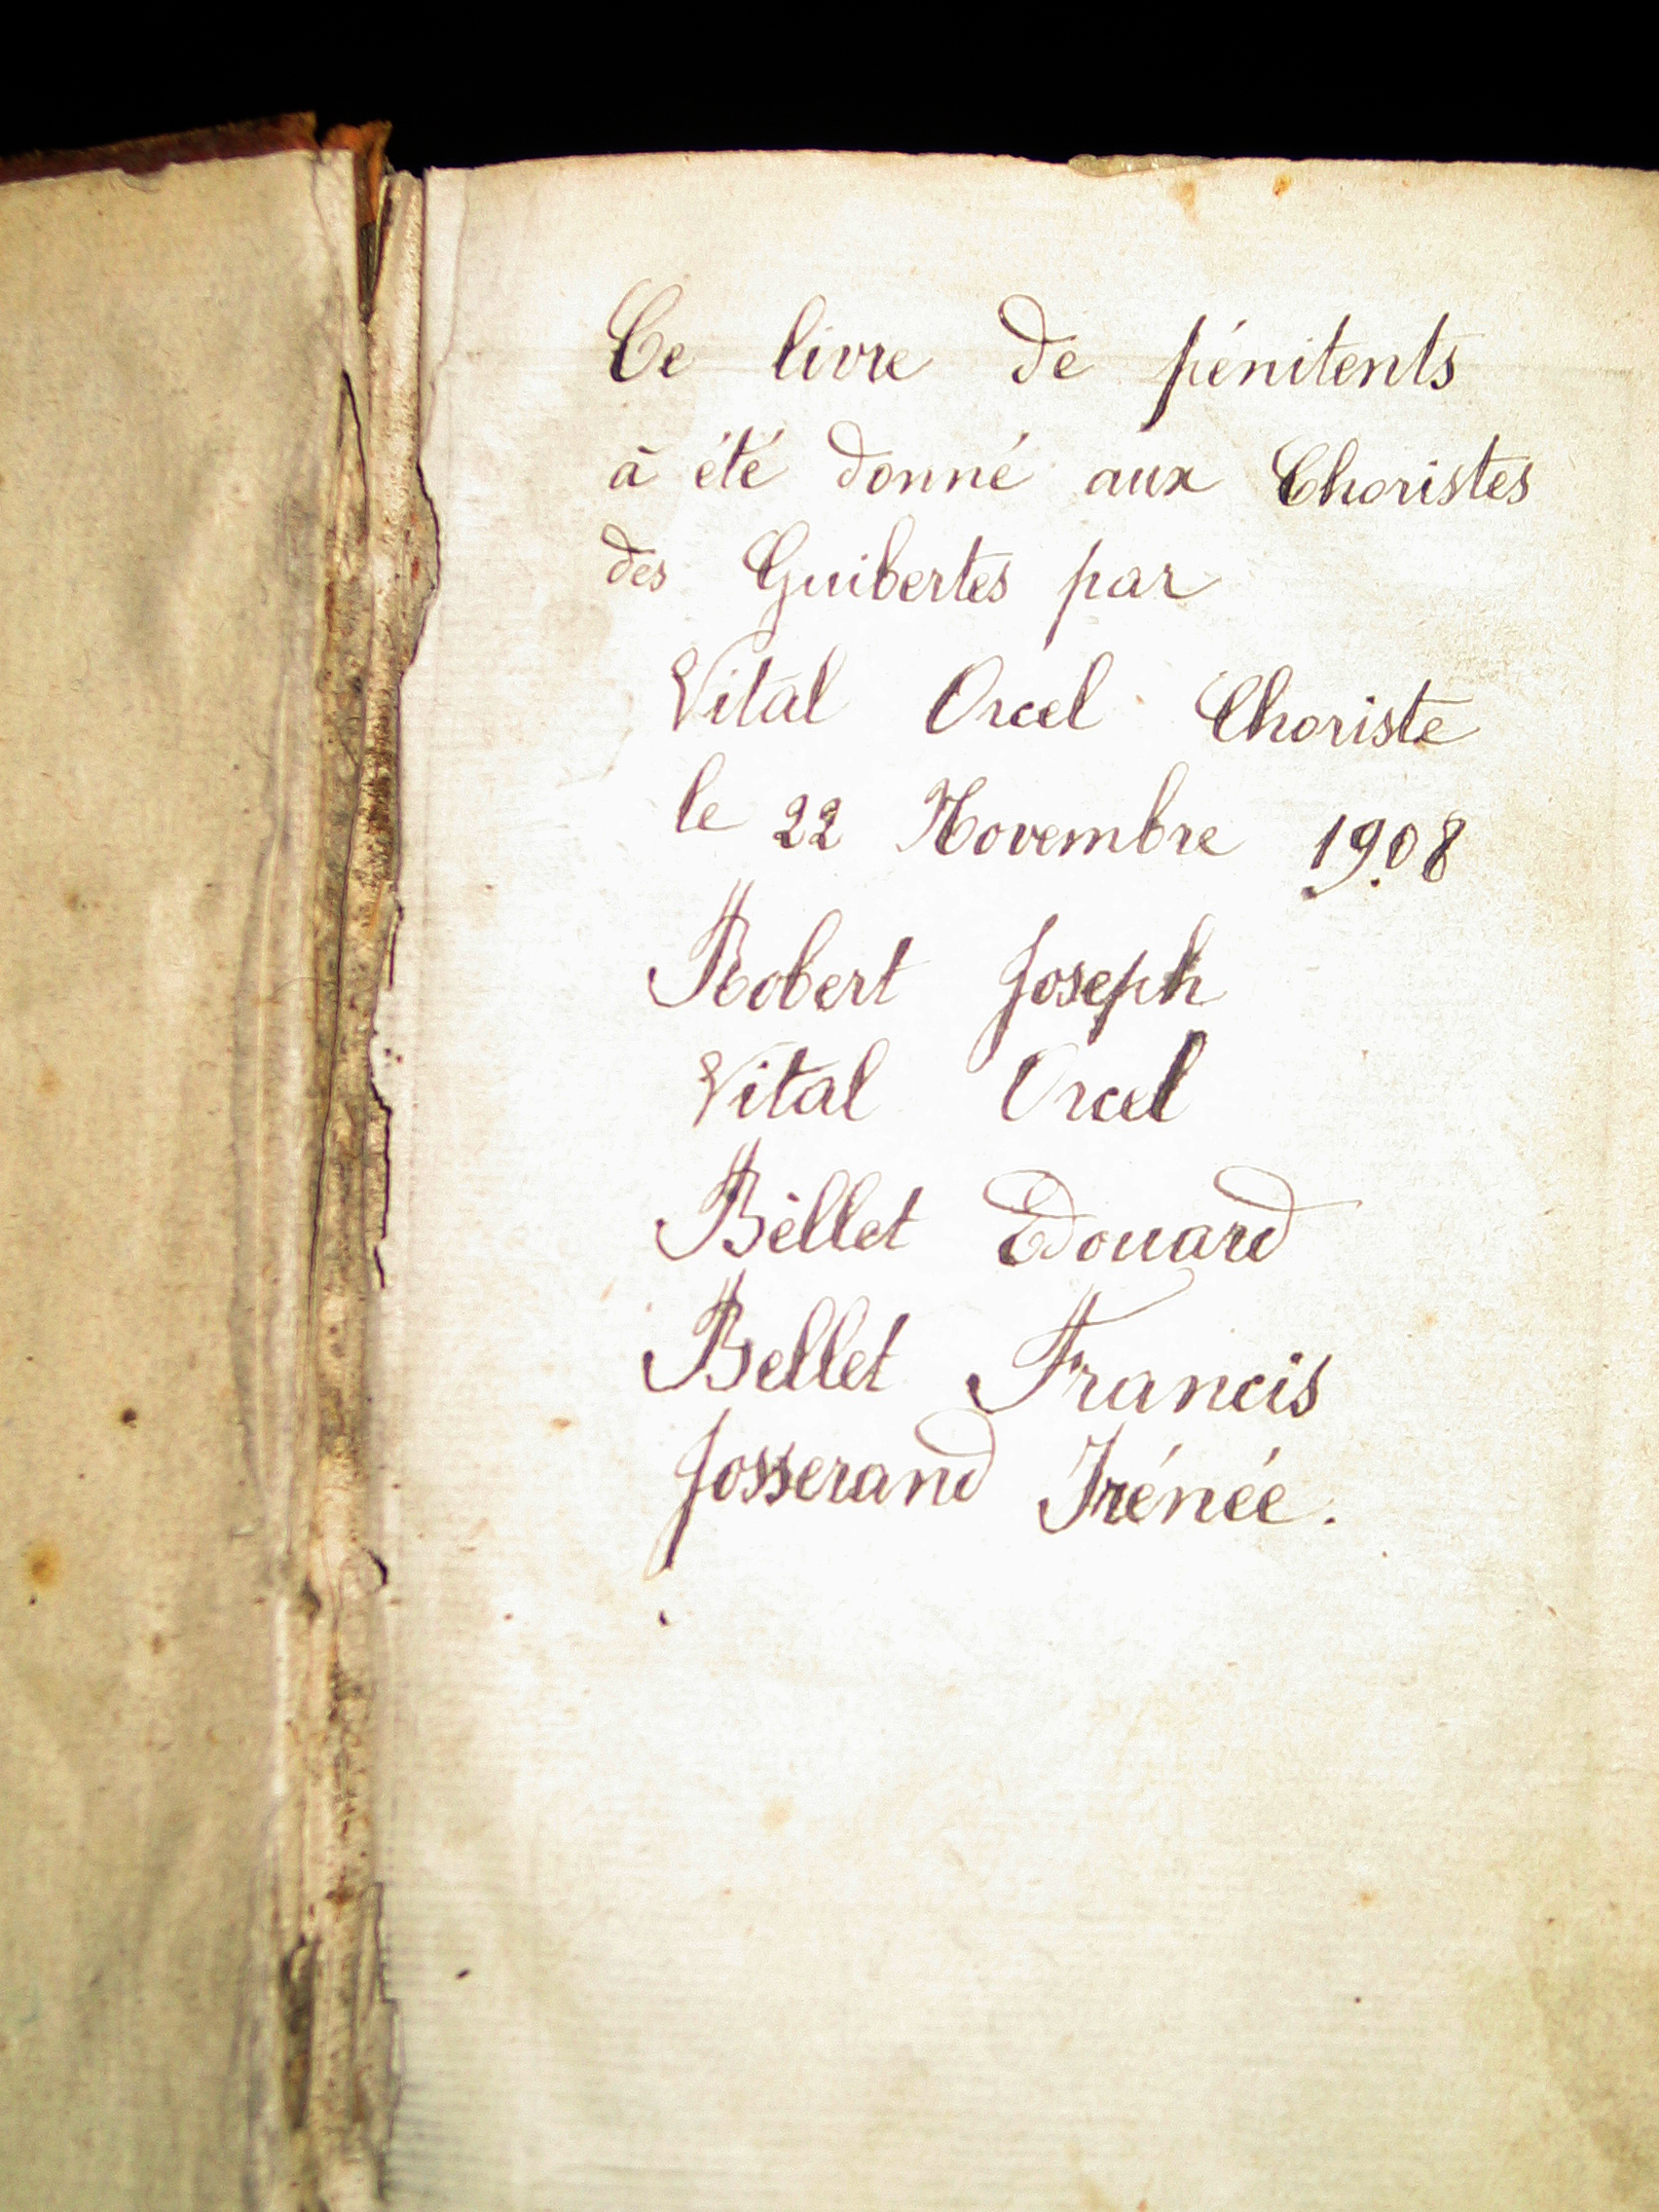 Ce livre de pénitents
à été donné aux Choristes
des Guibertes par
Vital Orcel Choriste
le 22 Novembre 1908
Robert Joseph
Vital Orcel
Bellet Edouard
Bellet Francis
Josserand Irénée.